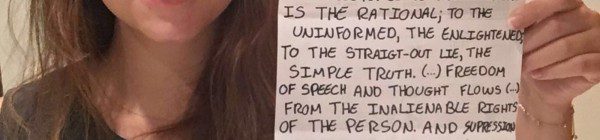 IS THE RATIONAL; TO THE
UNINFORMED, THE ENLIGHTENED;
TO THE STRAIGT-OUT LIE, THE
SIMPLE TRUTH. (...) FREEDOM
OF SPEECH AND THOUGHT FLOWS (...)
FROM THE INALIENABLE RIGHTS
OF THE PERSON. AND SUPRESSION